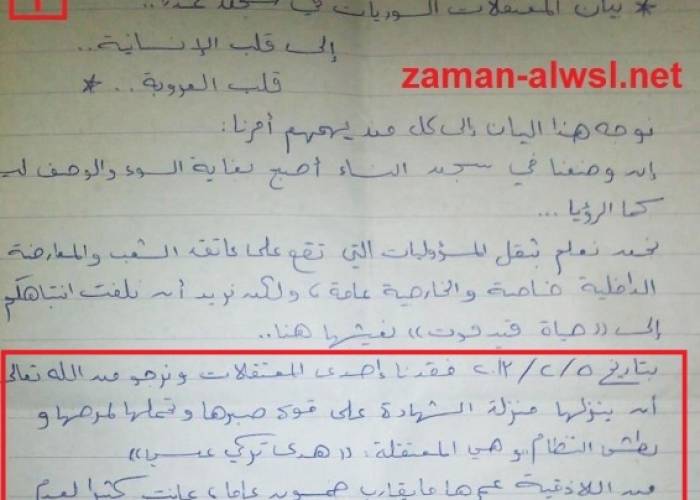 1
* بيان المعتقلات السوريات في سجن عدرا..
إلى قلب الإنسانية..
قلب العروبة.. *
zaman-alwsl.net
نوجه هذا البيان إلى كل من يهمهم أمرنا:
إن وضعنا في سجن النساء أصبح بغاية السوء والوصف ليس
كما الرؤيا...
نحن نعلم بثقل المسؤوليات التي تقع على عاتق الشعب والمعارضة
الداخلية خاصة والخارجية عامة، ولكن نريد أن نلفت انتباهكم
إلى «حياة قيد موت» نعيشها هنا..
بتاريخ ٢٠١٣/٢/٥ فقدنا إحدى المعتقلات ونرجو من الله تعالى
أن ينزلها منزلة الشهادة على قوة صبرها وتحملها لمرضها و
بطش النظام وهي المعتقلة: «هدى تركي عيسى»
من اللاذقية عمرها ما يقارب خمسون عاماً، عانت كثيراً لعدم